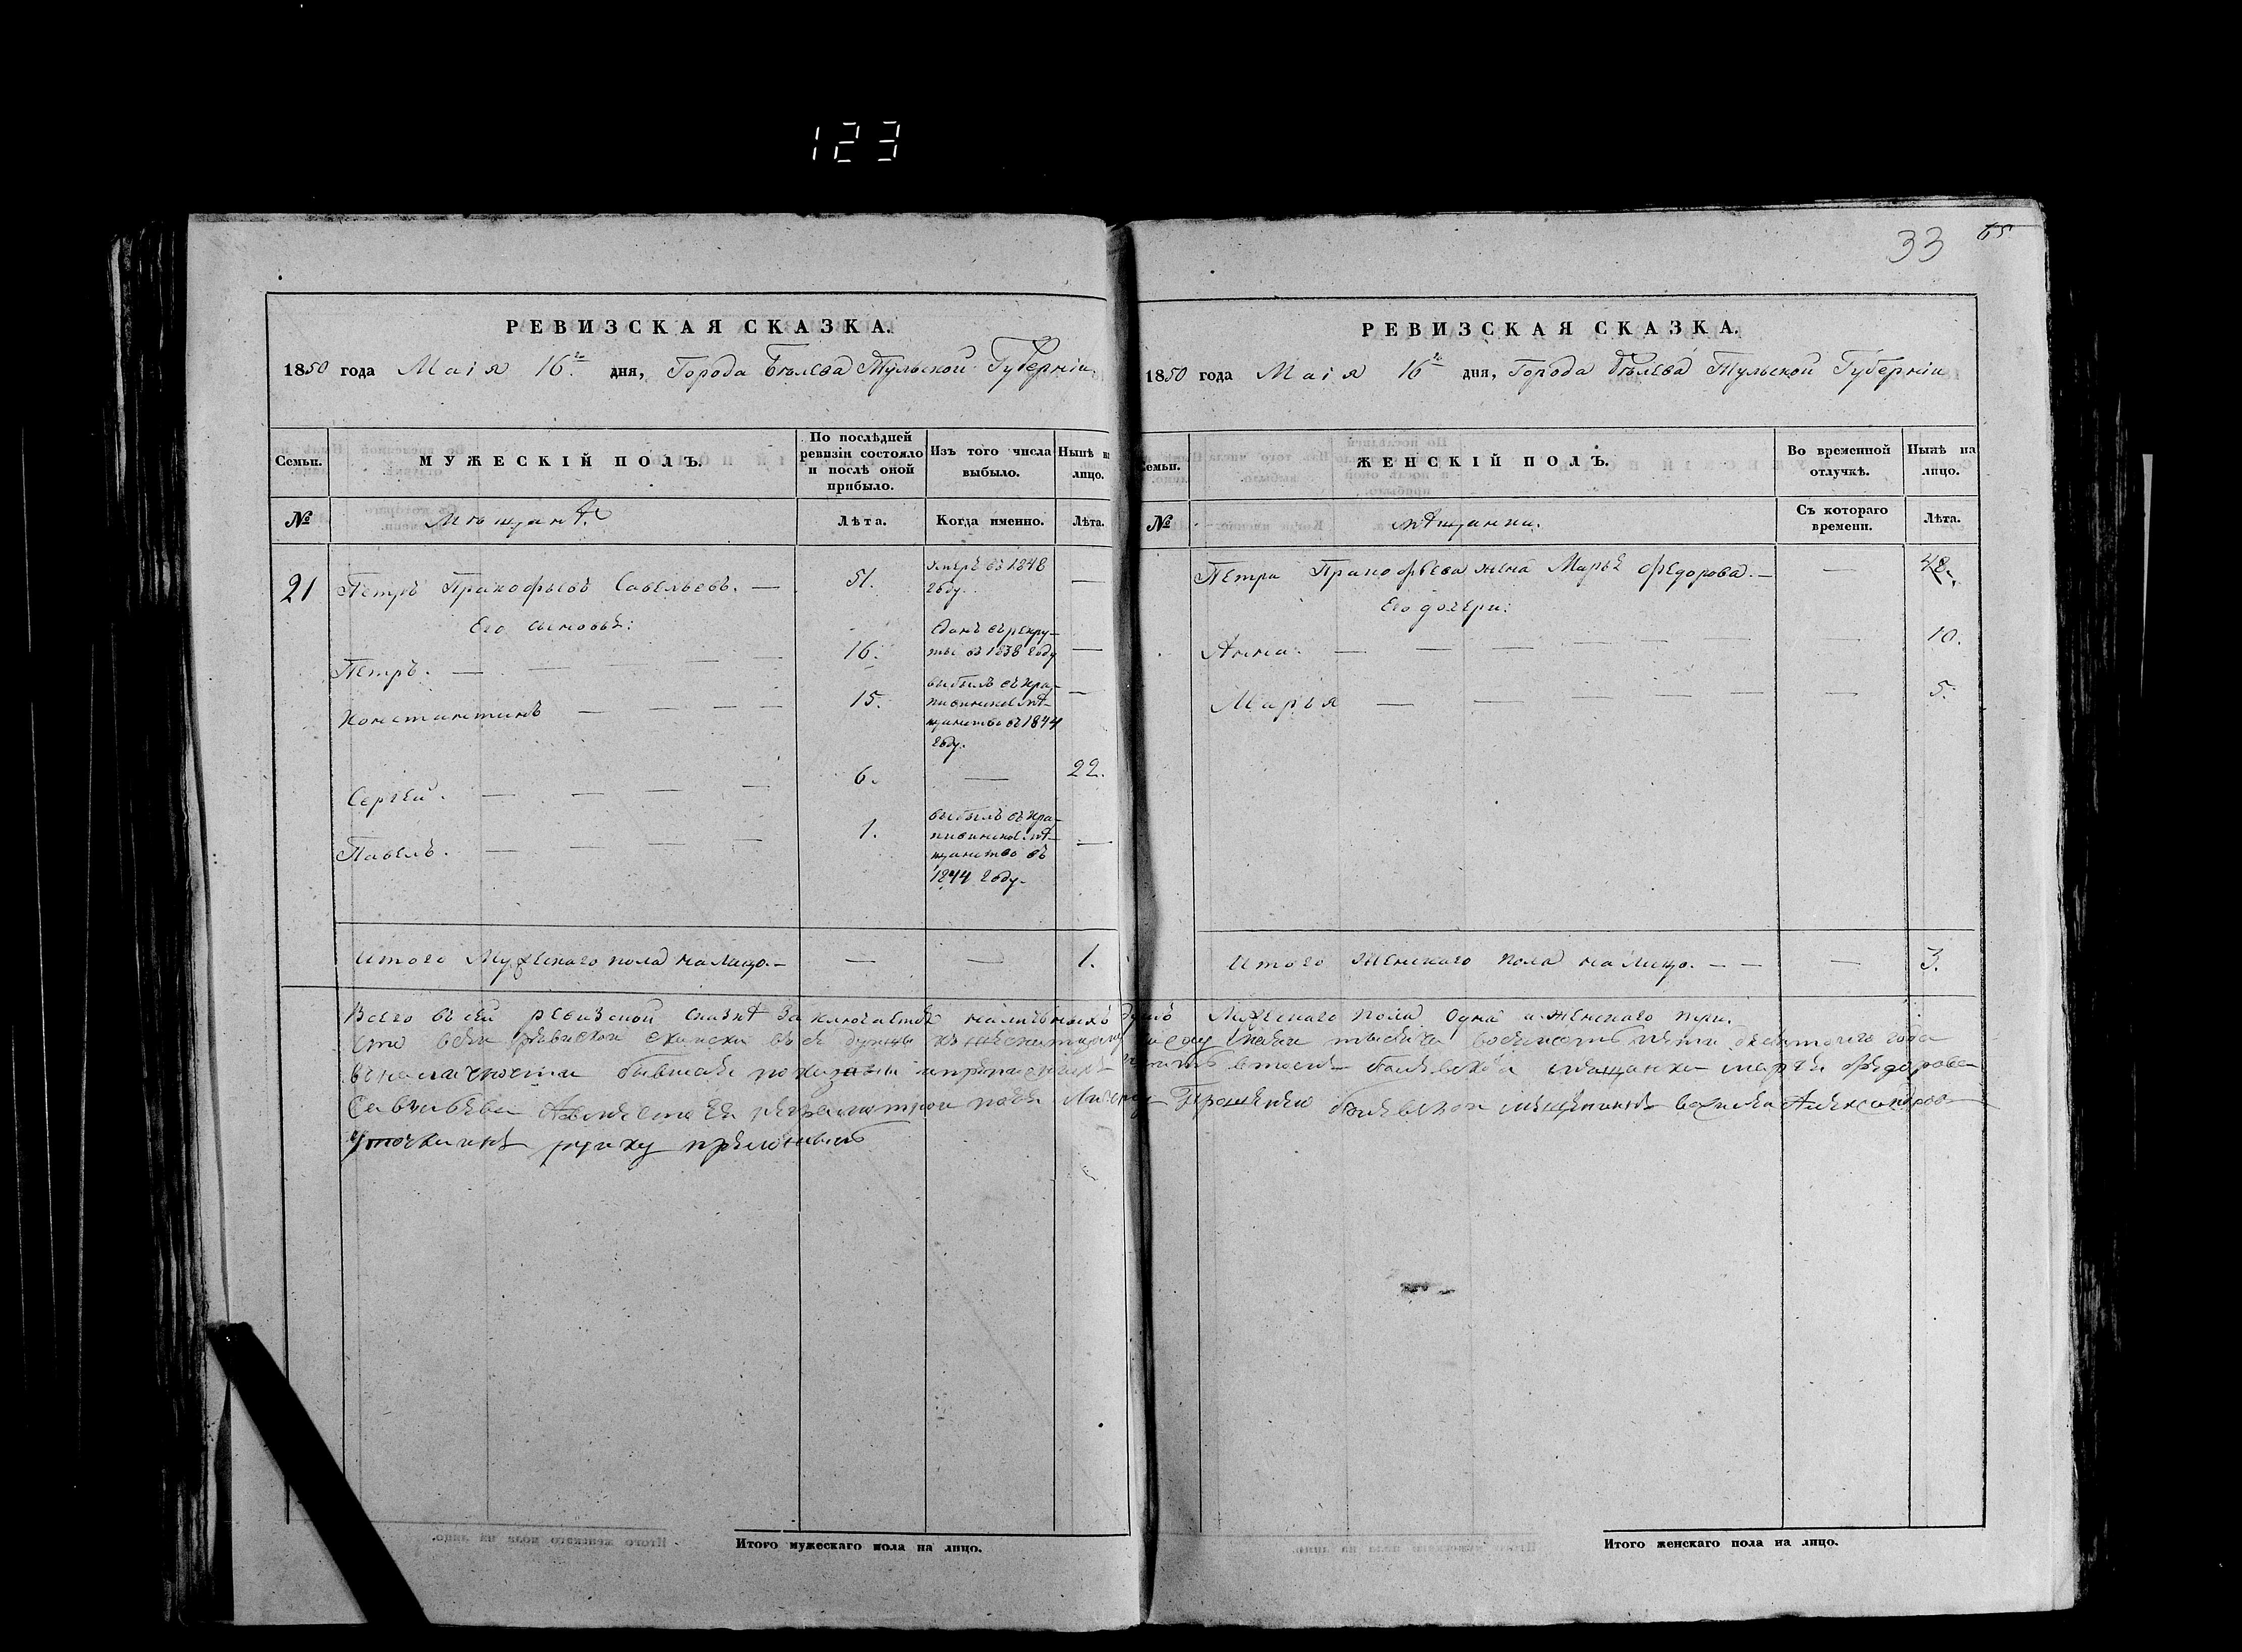 123
33 65
РЕВИЗСКАЯ СКАЗКА.
1850 года Маія 16го дня, Города Бѣлева Тульской Губерніи
Семьи. МУЖЕСКІЙ ПОЛЪ. По послѣдней ревизіи состояло и послѣ оной прибыло. Изъ того числа выбыло. Нынѣ на лицо.
№ Мѣщанѣ Лѣта. Когда именно. Лѣта.
21 Петръ Пракофьевъ Савельевъ. — 51. умеръ въ 1848 году. —
Его сыновьѣ:
Петръ. — 16. сданъ въ рекруты въ 1838 году —
Константинъ — 15. выбылъ въ Крапивинское мѣщанство въ 1844 году. —
Сергѣй. — 6. — 22.
Павелъ. — 1. выбылъ въ Крапивинское мѣщанство въ 1844 году. —
Итого Мужескаго пола на лицо. — — — 1.
РЕВИЗСКАЯ СКАЗКА.
1850 года Маія 16го дня, Города Бѣлева Тульской Губерніи
Семьи. ЖЕНСКІЙ ПОЛЪ. Во временной отлучкѣ. Нынѣ на лицо.
№ мѣщанки. Съ котораго времени. Лѣта.
Петра Пракофьева жена Марья Федорова. — — 48.
Его дочери:
Анна. — — 10.
Марья — — 5.
Итого Женскаго пола на лицо. — — 3.
Всего въ сей ревизской сказкѣ заключается наличныхъ душъ Мужескаго пола одна а женскаго три.
бывшае мещанка Марья Федорова
Савельева
руку приложилъ
Итого мужескаго пола на лицо.
Итого женскаго пола на лицо.